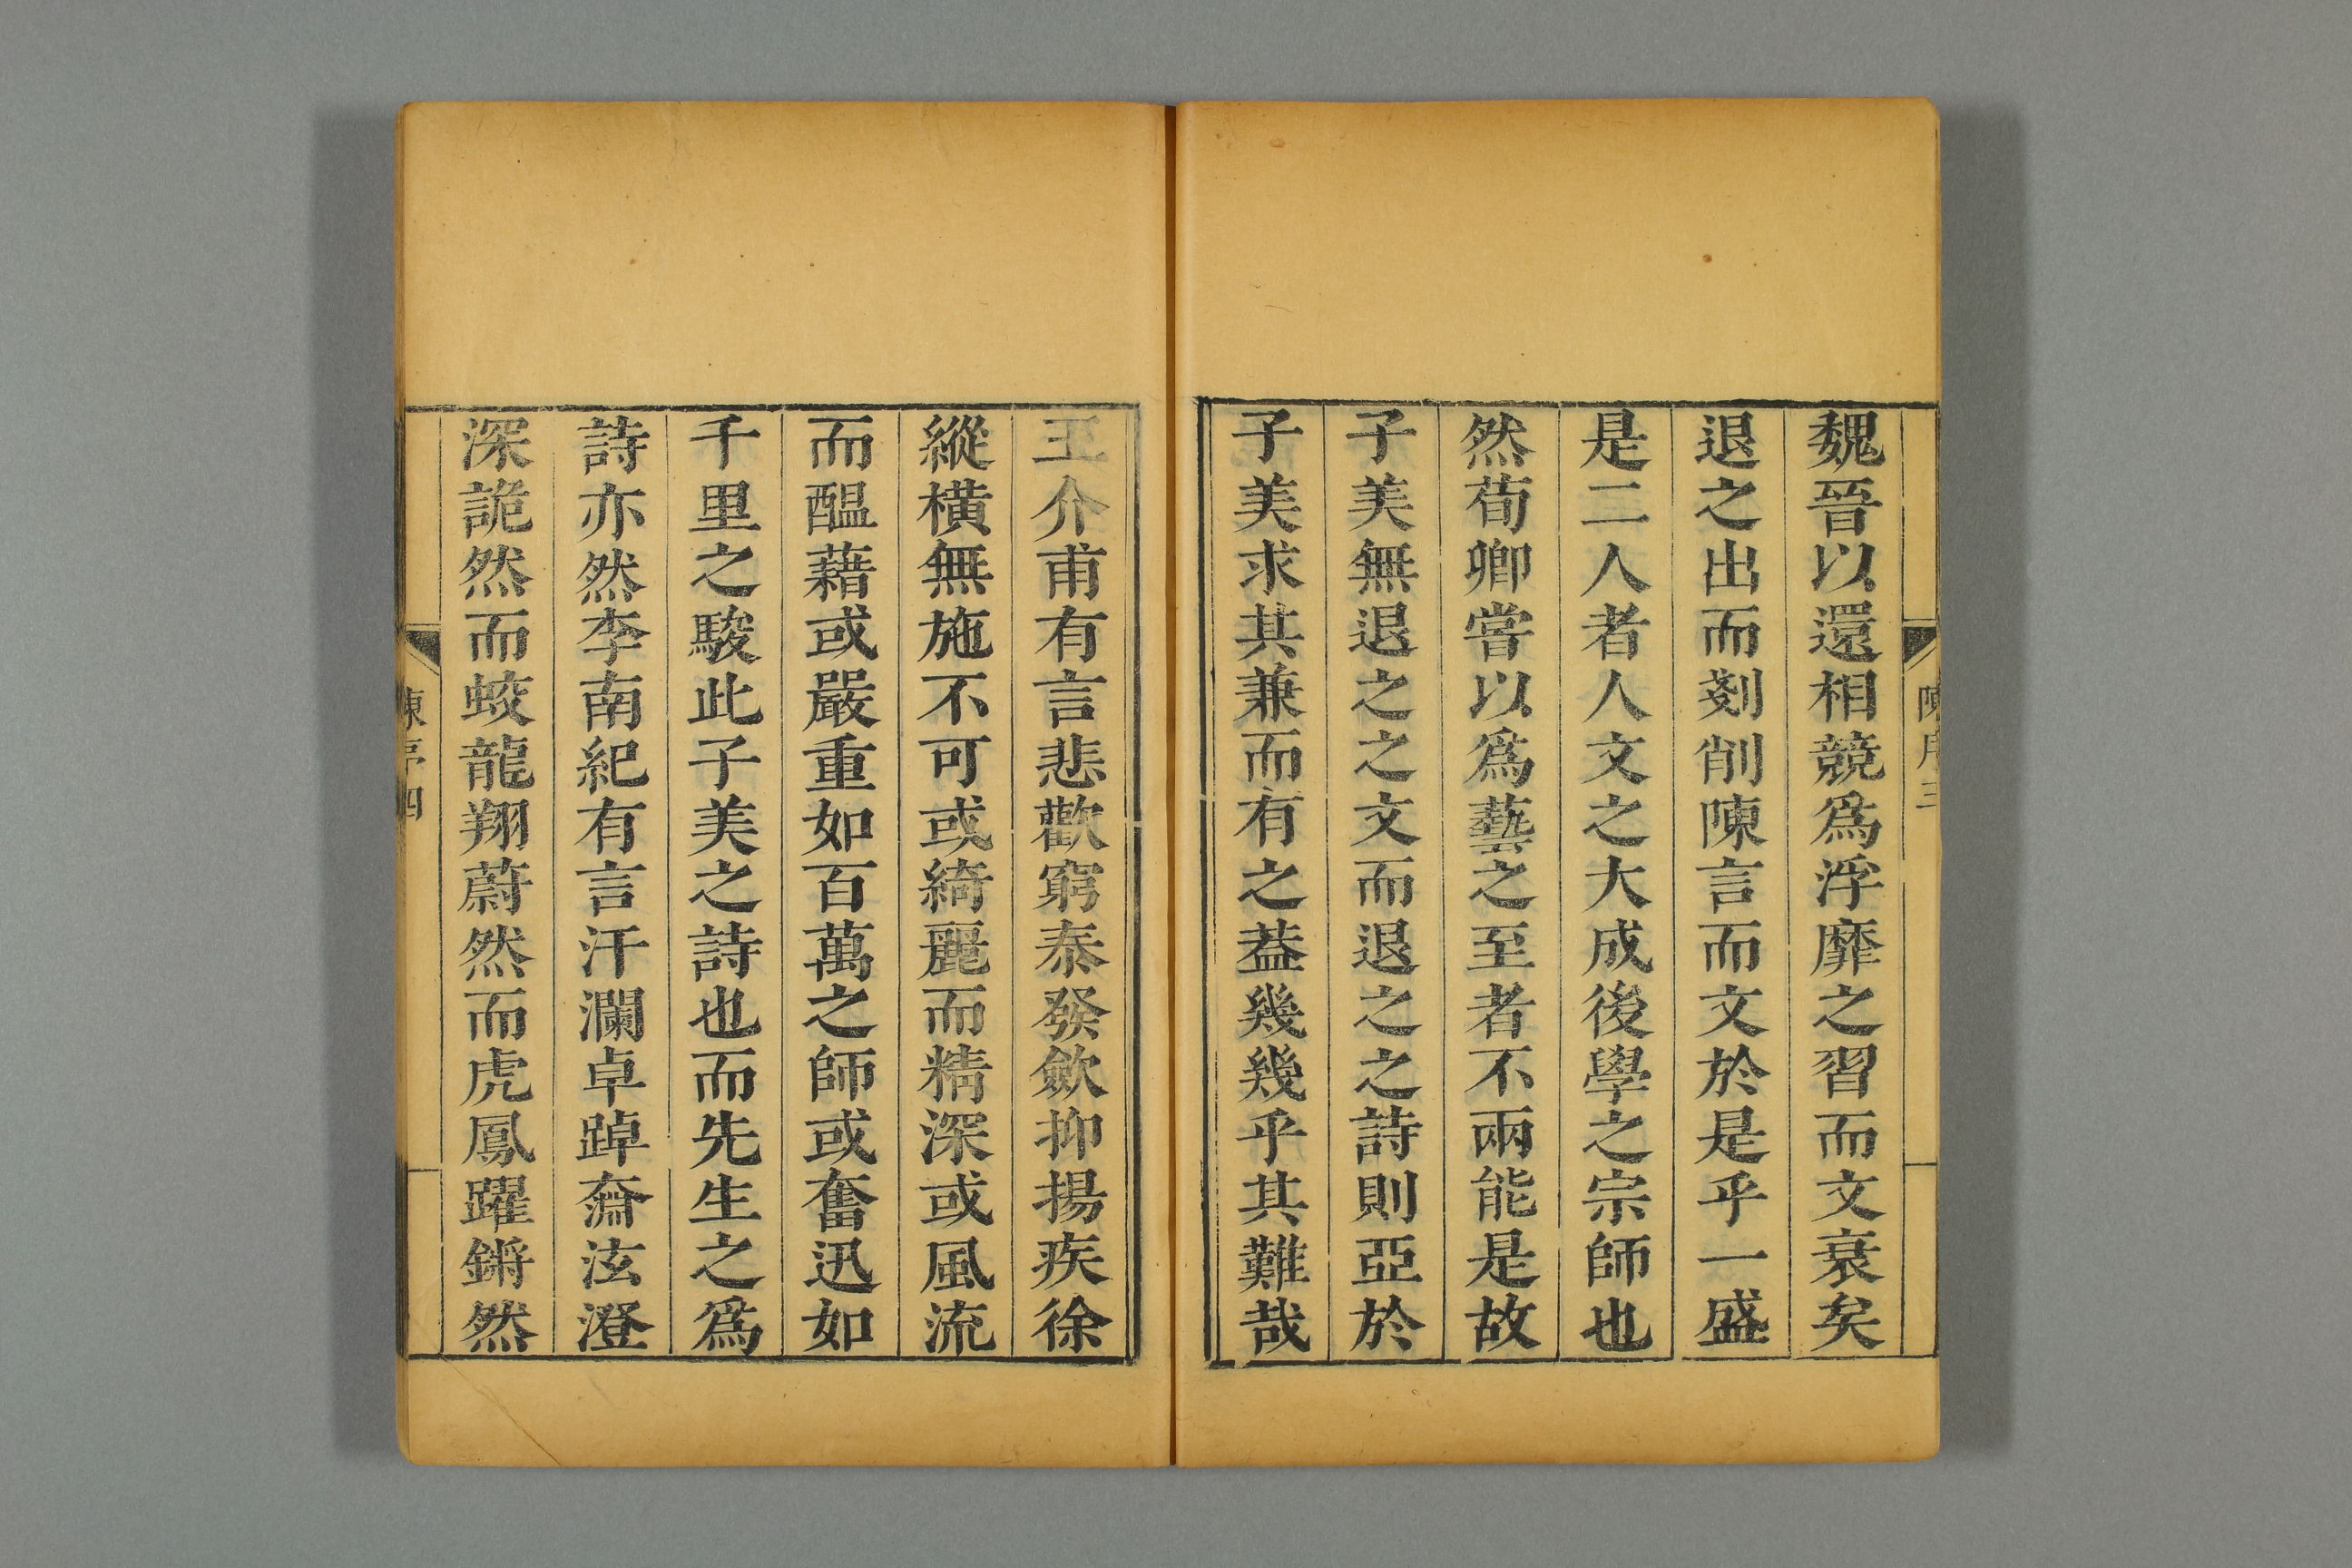 魏晉以還相競爲浮靡之習而文衰矣
退之出而剗削陳言而文於是乎一盛
是二人者人文之大成後學之宗師也
然荀卿嘗以爲藝之至者不兩能是故
子美無退之之文而退之之詩則亞於
子美求其兼而有之葢幾幾乎其難哉
王介甫有言悲歡窮泰發歛抑揚疾徐
縱橫無施不可或綺麗而精深或風流
而醞藉或嚴重如百萬之師或奮迅如
千里之駿此子美之詩也而先生之爲
詩亦然李南紀有言汗瀾卓踔奫泫澄
深詭然而蛟龍翔蔚然而虎鳳躍鏘然
陳序三
陳序四